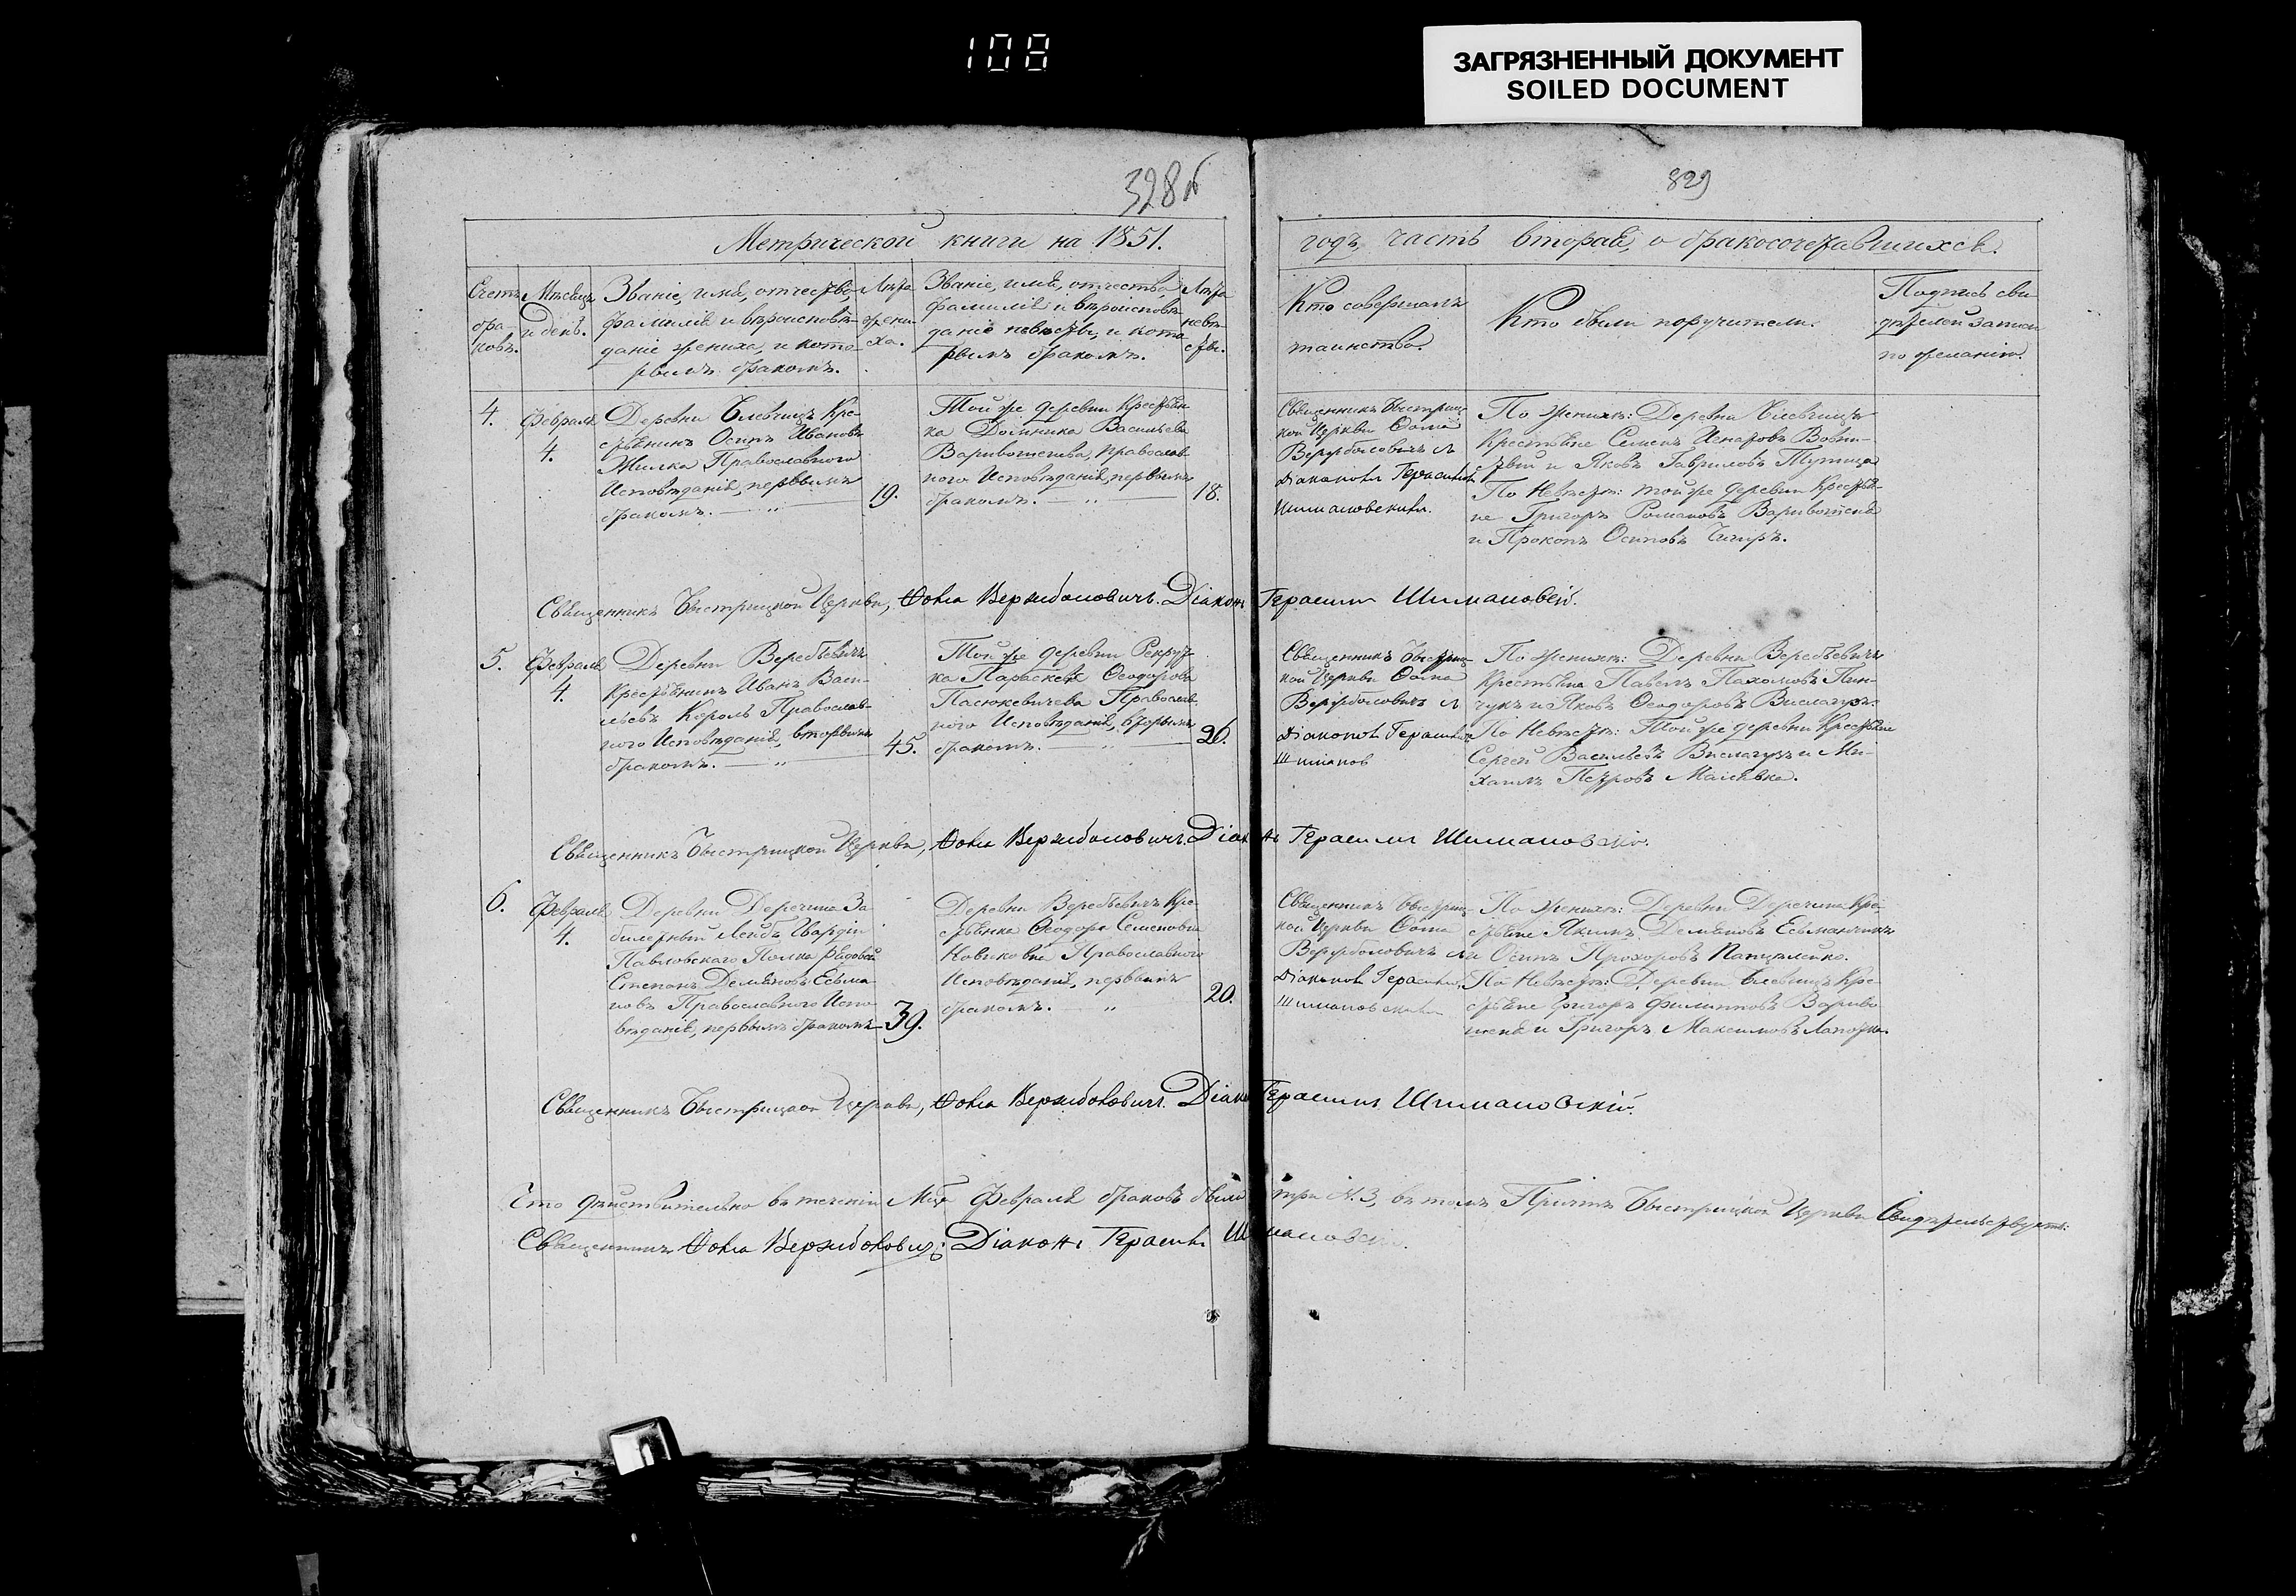 108
ЗАГРЯЗНЕННЫЙ ДОКУМЕНТ
SOILED DOCUMENT
328 б
829
Метрической книги на 1851.
годъ, часть вторая, о бракосочетавшихся.
Счетъ
бра-
ковъ.
Мѣсяцъ
и день.
Званіе, имя, отчество,
фамилія и вѣроисповѣ-
даніе жениха, и кото-
рымъ бракомъ.
Лѣта
жени-
ха.
Званіе, имя, отчество,
фамилія и вѣроисповѣ-
даніе невѣсты, и кото-
рымъ бракомъ.
Лѣта
невѣ-
сты.
Кто совершалъ
таинство.
Кто были поручители.
Подпись сви-
дѣтелей записи
по желанію.
4.
Февраля
4.
Деревни Блевчицъ Кре-
стьянинъ Осипъ Ивановъ
Жилка Православного
Исповѣданія, первымъ
бракомъ. — „ —
19.
Той же деревни Крестьян-
ка Домника Васильева
Варивотчева, Православ-
ного Исповѣданія, первымъ
бракомъ. „
18.
Священникъ Быстриц-
кой Церкви Фома
Вержболовичъ съ
Діакономъ Герасимомъ
Шимановскимъ.
По женихѣ: Деревни Блевчицъ
Крестьяне Семенъ Игнатовъ
и Яковъ Гавриловъ
По Невѣстѣ: той же деревни Крестья-
не Григоръ Романовъ
и Прокопъ Осиповъ Чигиръ.
Священникъ Быстрицкой Церкви, Фома Вержболовичъ. Діаконъ Герасимъ Шимановскій.
5.
Февраля
4.
Деревни Веребьевичъ
Крестьянинъ Иванъ Васи-
льевъ Король Православ-
ного Исповѣданія, вторымъ
бракомъ. — „ —
45.
Той же деревни Рекрут-
ка Параскева Ѳеодорова
Пасюкевичева Православ-
ного Исповѣданія, вторымъ
бракомъ. „
26.
Священникъ Быстриц-
кой Церкви Фома
Вержболовичъ съ
Діакономъ Герасимомъ
Шиманов
По женихѣ: Деревни Веребьевичъ
Крестьяна Павелъ Пахомовъ Пин-
чукъ и Яковъ Ѳеодоровъ Вислагузъ.
По Невѣстѣ: Той же деревни Крестьяне
Сергей Васильевъ Вислагузъ и Ми-
хаилъ Петровъ
Священникъ Быстрицкой Церкви, Фома Вержболовичъ. Діаконъ Герасимъ Шимановскій.
6.
Февраля
4.
Деревни Деречина За-
билетный Лейбъ Гвардіи
Павловскаго Полка Рядовой
Степанъ Демьяновъ Есьма-
новъ Православного Испо-
вѣданія, первымъ бракомъ
39.
Деревни Веребьевичъ Кре-
стьянка Ѳеодора Семеновна
Новиковна Православного
Исповѣданія, первымъ
бракомъ. „
20.
Священникъ Быстриц-
кой Церкви Фома
Вержболовичъ съ
Діакономъ Герасимомъ
Шимановскимъ
По женихѣ: Деревни Деречина Кре-
стьяне Якимъ Демьяновъ
и Осипъ Прохоровъ
По Невѣстѣ: Деревни Блевчицъ Кре-
стьяне Григоръ Филиповъ
и Григоръ Максимовъ Лапотка.
Священникъ Быстрицкой Церкви, Фома Вержболовичъ. Діаконъ Герасимъ Шимановскій.
Что дѣйствительно въ теченіи Мца Февраля браковъ было три N. 3, въ томъ Причтъ Быстрицкой Церкви Свидѣтельствуетъ:
Священникъ Фома Вержболовичъ; Діаконъ Герасимъ Шимановскій.